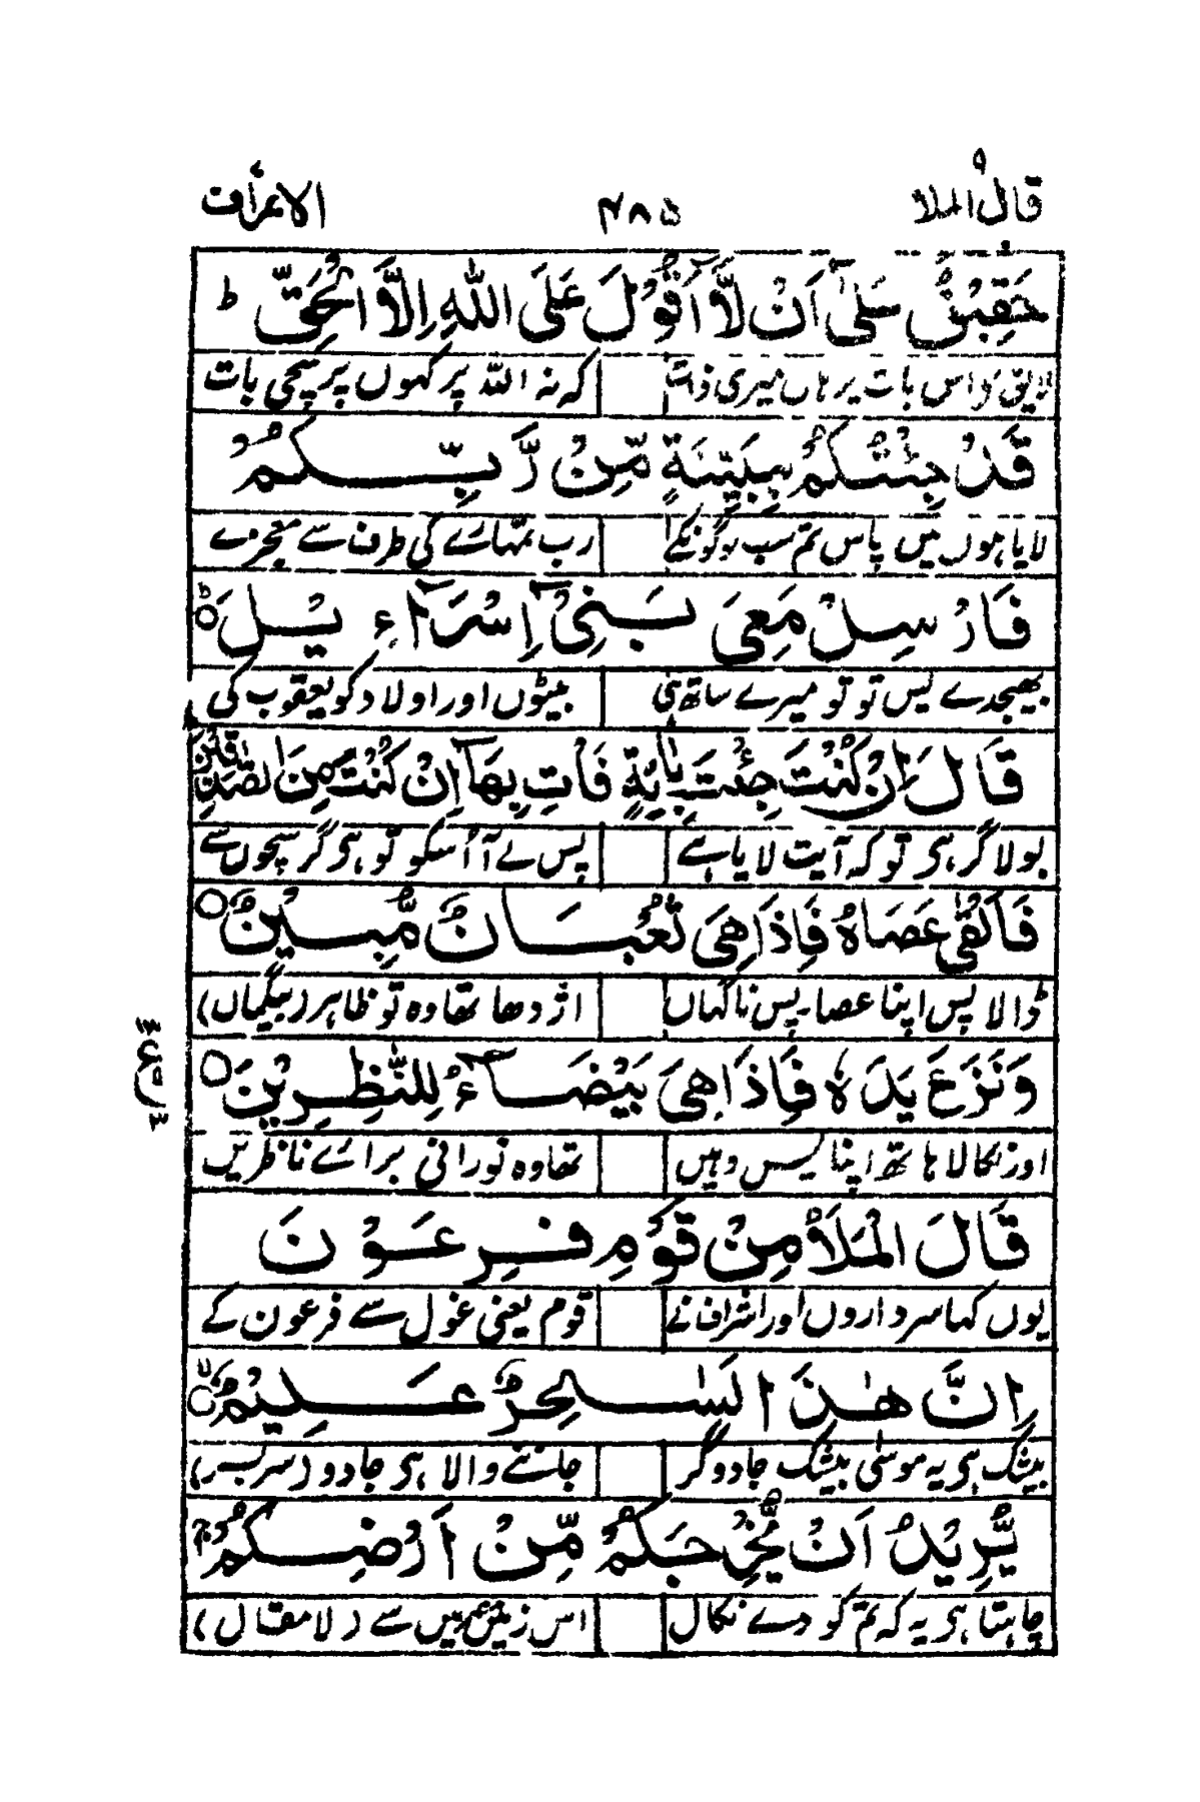 قال الملا ۹ ۴۸۵ الاعراف ۷
حَقِيْقٌ عَلٰٓى اَنْ لَّاۤ اَقُوْلَ عَلَى اللّٰهِ اِلَّا الْحَقَّ ؕ
لایق اس بات پر ہاں میری ذات کہ نہ اللہ پر کہوں پر سچی بات
قَدْ جِئْتُكُمْ بِبَيِّنَةٍ مِّنْ رَّبِّكُمْ
لایا ہوں میں پاس تم سب لوگونکے رب تمہارے کی طرف سے معجزے
فَاَرْسِلْ مَعِيَ بَنِيْۤ اِسْرَآءِيْلَ ○ؕ
بھیجدے پس تو تو میرے ساتھ ہی بیٹوں اور اولاد کو یعقوب کی
قَالَ اِنْ كُنْتَ جِئْتَ بِاٰيَةٍ فَاْتِ بِهَاۤ اِنْ كُنْتَ مِنَ الصّٰدِقِيْنَ
بولا گر ہی تو کہ آیت لایا ہے پس لے آ اُسکو تو ہی گر سچوں سے
فَاَلْقٰى عَصَاهُ فَاِذَا هِيَ ثُعْبَانٌ مُّبِيْنٌ ○
ڈالا پس اپنا عصا، پس ناگہاں اژدھا تھا وہ تو ظاہر (بیگماں)
وَنَزَعَ يَدَهٗ فَاِذَا هِيَ بَيْضَآءُ لِلنّٰظِرِيْنَ ○
اور نکالا ہاتھ اپنا پس وہیں تھا وہ نورانی برائے ناظریں
قَالَ الْمَلَاُ مِنْ قَوْمِ فِرْعَوْنَ
یوں کہا سرداروں اور اشراف نے قوم یعنی غول سے فرعون کے
اِنَّ هٰذَا لَسٰحِرٌ عَلِيْمٌ ○ۙ
بیشک ہی یہ موسٰی بیشک جادوگر جاننے والا ہی جادو (سربسر)
يُّرِيْدُ اَنْ يُّخْرِجَكُمْ مِّنْ اَرْضِكُمْ ۚ
چاہتا ہی یہ کہ تم کو دے نکال اس زمیں میں سے (لا مقال)